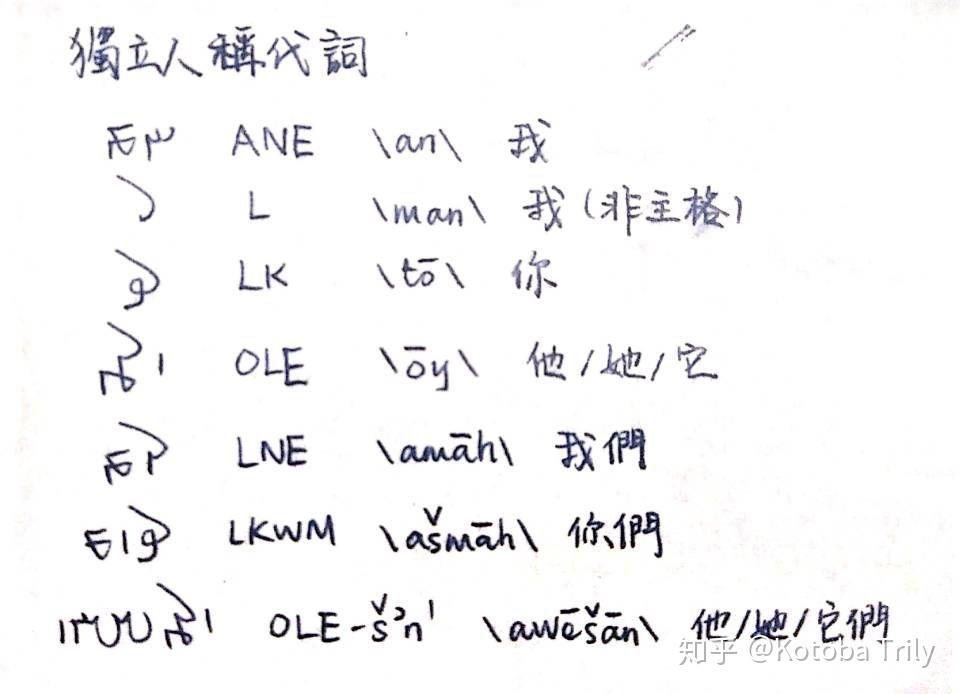 獨立人稱代詞
ANE \an\ 我
L \man\ 我(非主格)
LK \tō\ 你
OLE \ōy\ 他/她/它
LNE \amāh\ 我們
LKWM \ašmāh\ 你們
OLE-šʾn' \awēšān\ 他/她/它們
知乎 @Kotoba Trily